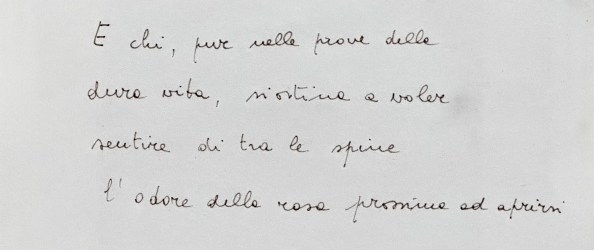 E chi, pur nelle prove della
dura vita, si ostina a voler
sentire di tra le spine
l'odore della rosa prossima ad aprirsi